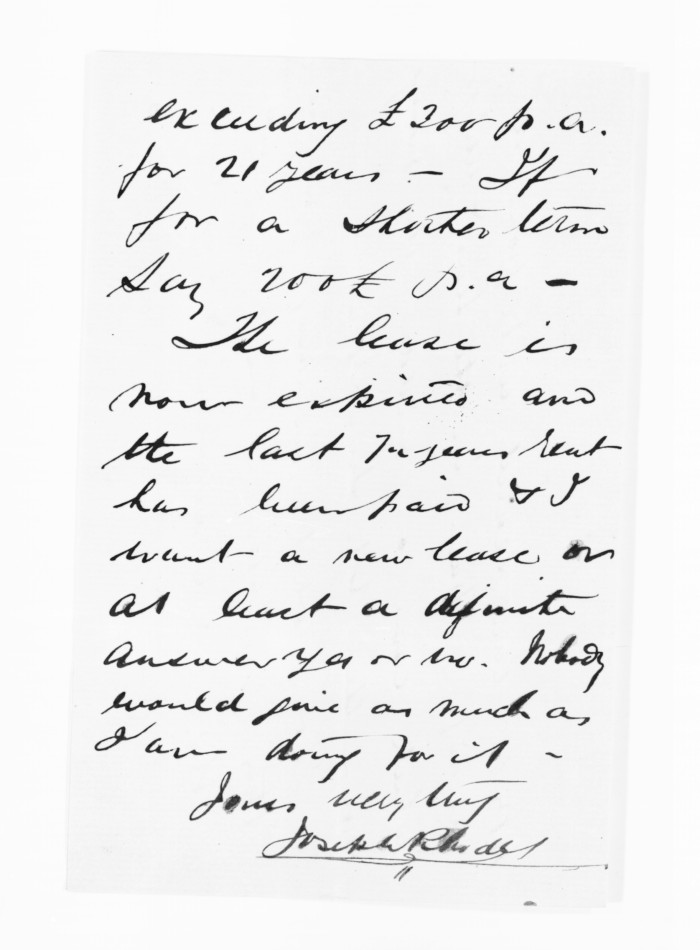 exceeding £300 p.a.
for 21 years — If
for a shorter term
say 200£ p.a —
The lease is
now expired and
the last years rent
has been paid & I
want a new lease or
at least a definite
answer yes or no. Nobody
would give as much as
I am doing for it —
Yours very truly
Joseph Rhodes